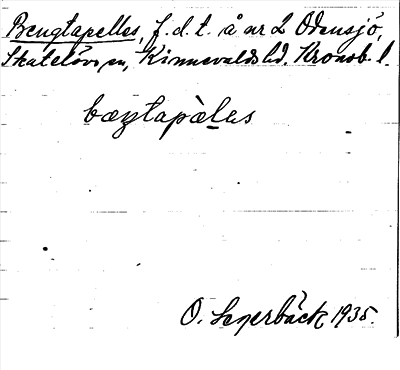 Bengtapelles, f.d.t. å nr 2 Odensjö,
Skatelövs sn, Kinnevalds hd. Kronob. l.
bæŋtapèlas
O. Senerbäck 1935.